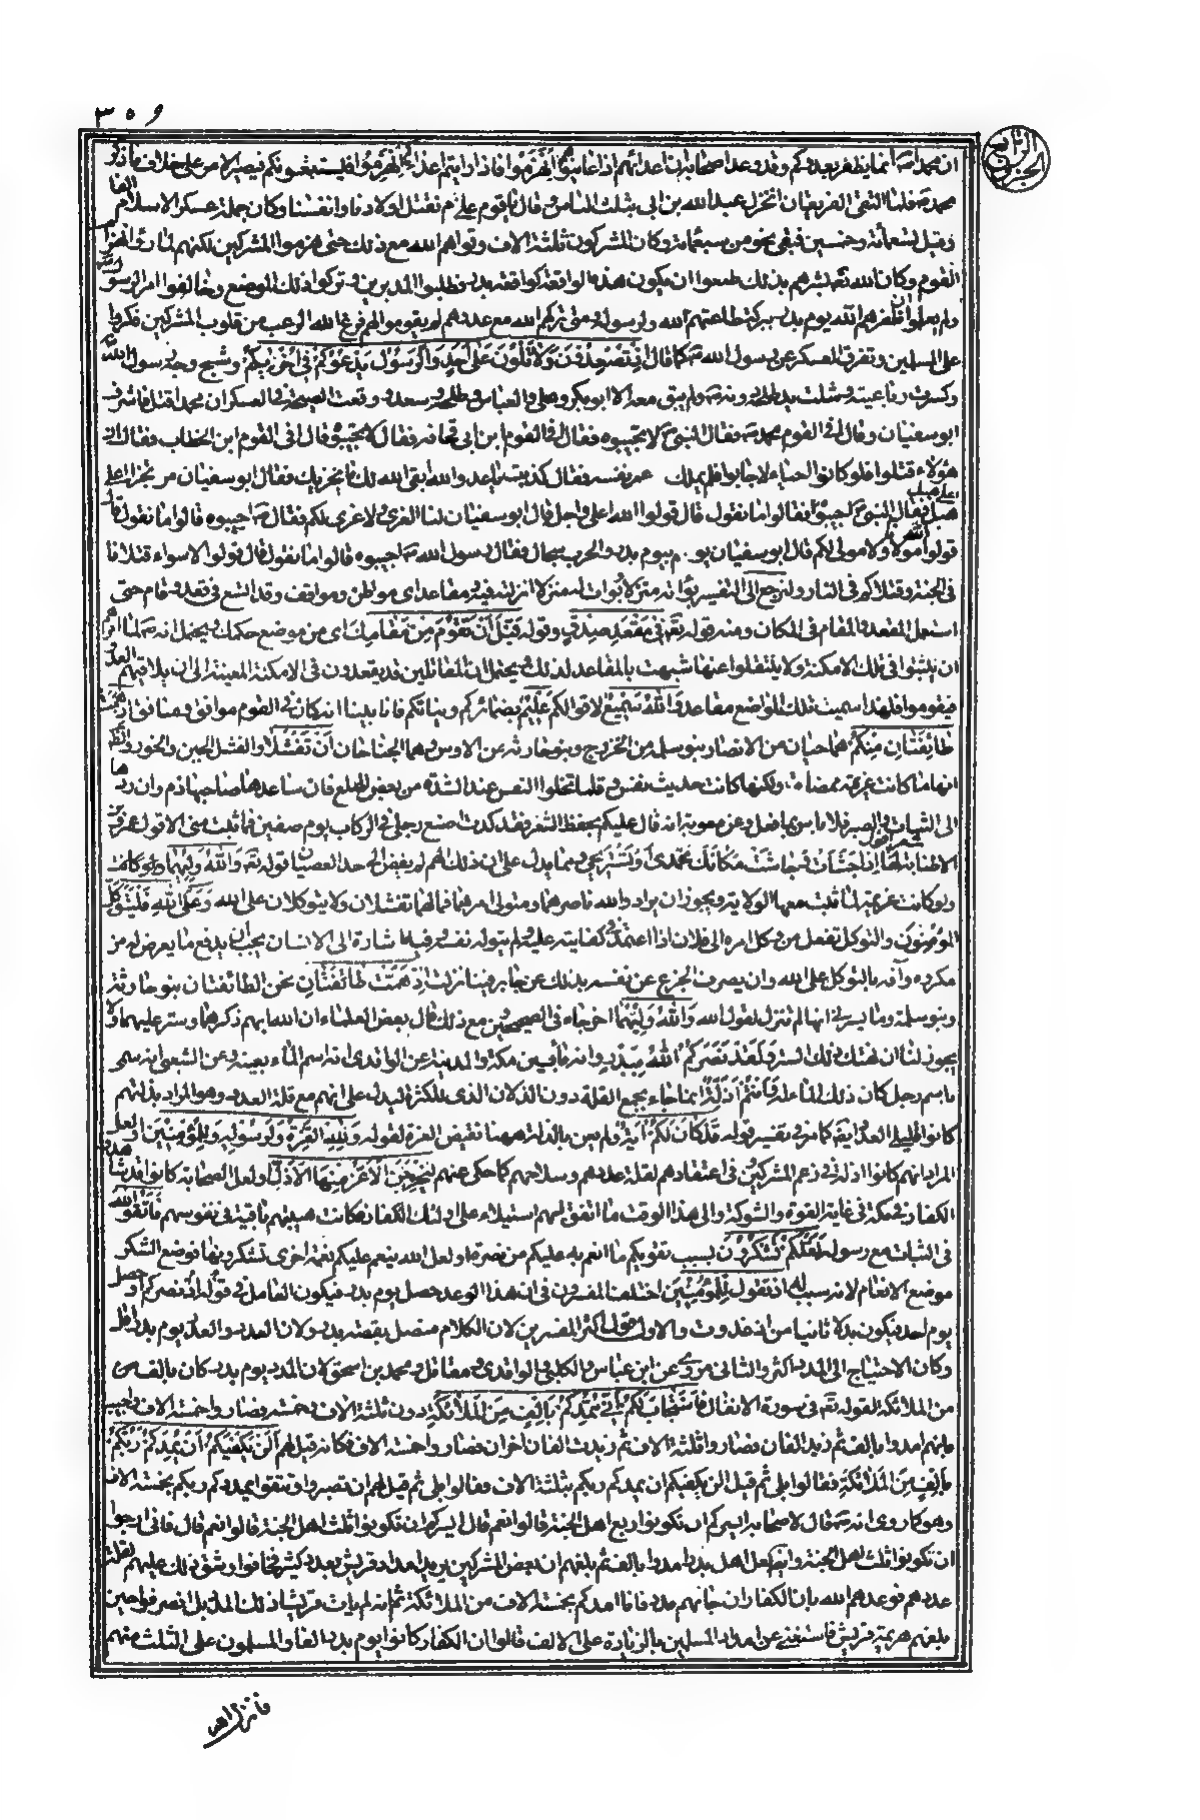 ٣٥٩
الجزء الرابع
ان محمدا صم انما يظفر بعدوكم وقد وعد اصحابه ان اعدائهم اذا عاينوهم انهزموا فاذا رايتم اعدائكم انهزموا فليستبعونكم فيصير الامر على خلاف ما ذكر
محمد صم فلما التقى الفريقان انخزل عبد الله بن ابى بثلث الناس وقال يا قوم على م نقتل اولادنا وانفسنا وكان جملة عسكر الاسلام الفا
وقيل تسعمائة وخمسين فبقى نحو من سبعمائة وكان المشركون ثلثة الاف وقواهم الله مع ذلك حتى هزموا المشركين لكنهم لما رأوا انهزام
القوم وكان الله تعه بشرهم بذلك طمعوا ان يكون هذه الواقعة كواقعة بدر فطلبوا المدبرين وتركوا ذلك الموضع وخالفوا امر الرسول
ولم يعلموا ان ظفرهم الله يوم بدر ببركة طاعتهم الله ولرسوله ومتى تركهم الله مع عدوهم لم يقوموا لهم فنزع الله الرعب من قلوب المشركين فكروا
على المسلمين وتفرق العسكر عن رسول الله صم كما قال اذ تصعدون ولا تلوون على احد والرسول يدعوكم في اخريكم وشج وجه رسول الله
وكسرت رباعيته وشلت يد طلحة دونه صم ولم يبق معه الا ابو بكر وعلى والعباس وطلحة وسعد ووقعت الصيحة في العسكر ان محمدا قتل فاشرف
ابو سفيان وقال افى القوم محمد صم فقال النبى صم لا تجيبوه فقال افى القوم ابن ابى قحافة فقال لا تجيبوه قال افى القوم ابن الخطاب فقال ان
هؤلاء قتلوا فلو كانوا احياء لاجابوا فلم يملك عمر نفسه فقال كذبت يا عدو الله ابقى الله لك ما يخزيك فقال ابو سفيان مرتجزا اعل
هبل اعل هبل فقال النبى صم اجيبوه فقالوا ما نقول قال قولوا الله اعلى واجل قال ابو سفيان لنا العزى ولا عزى لكم فقال صم اجيبوه قالوا ما نقول قال
قولوا الله مولانا ولا مولى لكم قال ابو سفيان يوم بيوم بدر والحرب سجال وفقال رسول الله صم اجيبوه قالوا ما نقول قال قولوا لا سواء قتلانا
في الجنة وقتلاكم في النار ولنرجع الى التفسير بوأته منزلا وبوات له منزلا انزلته فيه ومقاعد اى مواطن ومواقف وقد اتسع في قعد وقام حتى
استعمل المقعد والمقام في المكان ومنه قوله تعه في مقعد صدق وقوله قبل ان تقوم من مقامك اى من موضع حكمك ويحتمل انه صم لما امرهم
ان يثبتوا في تلك الامكنة ولا ينتقلوا عنها شبهت بالمقاعد لذلك ويحتمل ان المقاتلين قد يقعدون في الامكنة المعينة الى ان يلاقيهم العدو
فيقوموا فلهذا سميت تلك المواضع مقاعد والله سميع لاقوالكم عليم بضمائركم ونياتكم فانا بينا انه كان في القوم موافق ومنافق اذ همت
طائفتان منكم هما حيان من الانصار بنو سلمة من الخزرج وبنو حارثة من الاوس وهما الجناحان ان تفشلا والفشل الجبن والخور والظاهر
انها ما كانت عزيمة ممضاة ولكنها كانت حديث نفس وقلما تخلوا النفس عند الشدة من بعض الهلع فان ساعدها صاحبها ذم وان ردها
الى الثبات والصبر فلا باس بما فعل وعن معوية انه قال عليكم بحفظ الشعر فقد كدت اضع رجلى في الركاب يوم صفين فما ثبت منى الا قول عمرو بن
الاطنابة شعر اقول لها اذا جشأت وجاشت مكانك تحمدى او تستريحى ومما يدل على ان ذلك الهم لم يفض الى حد العصيان قوله تعه والله وليهما ولو كانت
ولو كانت عزيمة لما ثبتت معها الولاية ويجوز ان يراد والله ناصرهما ومتولى امرهما فما لهما تفشلان ولا يتوكلان على الله وعلى الله فليتوكل
المؤمنون والتوكل تفعل من وكل امره الى فلان اذا اعتمد في كفايته عليه ولم يتوله نفسه وفيه اشارة الى ان الانسان يجب ان يدفع ما يعرض له من
مكروه وآفة بالتوكل على الله وان يصرف الجزع عن نفسه بذلك عن جابر فينا نزلت اذ همت طائفتان نحن الطائفتان بنو حارثة
وبنو سلمة وما يسرنى انها لم تنزل لقول الله والله وليهما اخرجاه في الصحيحين مع ذلك قال بعض العلماء ان الله ابهم ذكرهما وستر عليهما ولا
يجوز لنا ان نهتك ذلك الستر ولقد نصركم الله ببدر وانه ماء بين مكة والمدينة عن الواقدى انه اسم الماء بعينه وعن الشعبى انه سمى
باسم رجل كان ذلك الماء له وانتم اذلة انما جاء بجمع القلة دون الذلان الذى للكثرة ليدل على انهم مع قلة العدد وهو المراد بذلتهم
كانوا قليلى العدد ايضا كما مر في تفسير قوله قد كان لكم اية ولم يعن بالذلة ههنا نقيض العزة لقوله ولله العزة ولرسوله وللمؤمنين او لعل
المراد انهم كانوا اذلة في زعم المشركين وفي اعتقادهم لقلة عددهم وسلاحهم كما حكى عنهم ليخرجن الاعز منها الاذل ولعل الصحابة كانوا قد شاهدوا
الكفار في مكة في غاية القوة والشوكة والى هذا الوقت ما اتفق لهم استيلاء على اولئك الكفار فكانت هيبتهم باقية في نفوسهم فاتقوا الله
فى الثبات مع رسوله لعلكم تشكرون بسبب تقويكم ما انعم به عليكم من نصرته او لعل الله ينعم عليكم نعمة اخرى تشكرونها فوضع الشكر
موضع الانعام لانه سببه اذ تقول للمؤمنين اختلف المفسرون في ان هذا الوعد حصل يوم بدر فيكون العامل في قوله اذ نصركم او حصل
يوم احد فيكون بدلا ثانيا من اذ غدوت والاول قول اكثر المفسرين لان الكلام متصل بقصة بدر ولان العدد والعدد يوم بدر اقل
وكان الاحتياج الى المدد اكثر والثانى مروى عن ابن عباس والكلبى والواقدى ومقاتل ومحمد بن اسحق لان المدد يوم بدر كان بالف من
من الملائكة لقوله تعه في سورة الانفال فاستجاب لكم انى ممدكم بالف من الملائكة دون ثلثة الاف وخمسة فصاروا خمسة الاف واجيب
بانهم امدوا بالف ثم زيد الفان فصاروا ثلثة الاف ثم زيدت الفان اخران فصاروا خمسة الاف فكانه قيل لهم الن يكفيكم ان يمدكم ربكم
بالف من الملائكة فقالوا بلى ثم قيل الن يكفيكم ان يمدكم ربكم بثلثة الاف وفقالوا بلى ثم قيل لهم ان تصبروا وتتقوا يمددكم ربكم بخمسة الاف
وهو كما روى انه صم قال لاصحابه ايسركم ان تكونوا ربع اهل الجنة قالوا نعم قال ايسركم ان تكونوا ثلث اهل الجنة قالوا نعم قال فانى ارجوا
ان تكونوا ثلث اهل الجنة وايضا لعل اهل بدر امدوا بالف ثم بلغهم ان بعض المشركين يريد امداد قريش بعدد كثير فخافوا وشق ذلك عليهم لقلة
عددهم فوعدهم الله بان الكفار ان جائهم مدد فانا امدكم بخمسة الاف من الملائكة ثم انه لم يات قريشا ذلك المدد بل انصرفوا حين
بلغهم هزيمة قريش فاستغنى عن امداد المسلمين بالزيادة على الالف قالوا ان الكفار كانوا يوم بدر الفا والمسلمون على الثلث منهم
فانزل اهـ